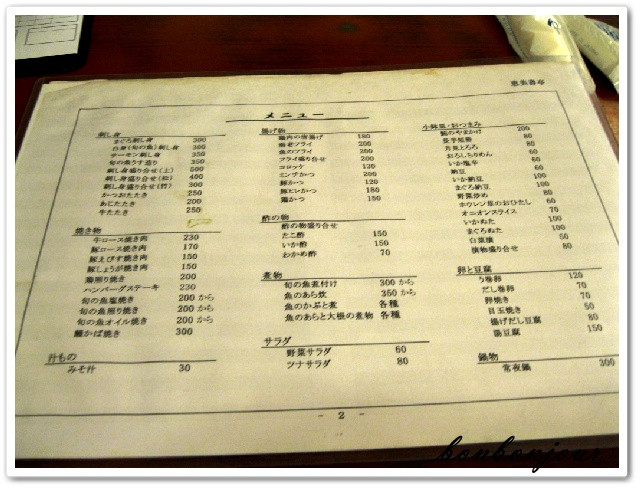 恵美壽亭
メニュー
刺し身
まぐろ刺し身 300
白身(旬の魚)刺し身 300
サーモン刺し身 350
旬の魚うす造り 350
刺し身盛り合せ(上) 500
刺し身盛り合せ(松) 400
刺し身盛り合せ(竹) 300
かつおたたき 250
あじたたき 200
牛たたき 250
焼き物
牛ロース焼き肉 230
豚ロース焼き肉 170
豚えびす焼き肉 150
豚しょうが焼き肉 150
鶏照り焼き 200
ハンバーグステーキ 230
旬の魚塩焼き 200 から
旬の魚照り焼き 200 から
旬の魚オイル焼き 200 から
鰻かば焼き 300
汁もの
みそ汁 30
揚げ物
鶏肉の唐揚げ 180
海老フライ 200
魚のフライ 200
フライ盛り合せ 200
コロッケ 130
ミンチかつ 200
豚かつ 120
豚ヒレかつ 180
鶏かつ 150
酢の物
酢の物盛り合せ
たこ酢 150
いか酢 150
わかめ酢 70
煮物
旬の魚煮付け 300 から
魚のあら炊 350 から
魚のかぶと煮 各種
魚のあらと大根の煮物 各種
サラダ
野菜サラダ 60
ツナサラダ 80
小鉢皿・おつまみ
鮪のやまかけ 200
長芋短冊 80
月見とろろ 80
おろしちりめん 80
いか塩辛 60
納豆 60
いか納豆 100
まぐろ納豆 100
野菜炒め 80
ホウレン草のおひたし 60
オニオンスライス 70
いかぬた 100
まぐろぬた 100
白菜漬 50
漬物盛り合せ 80
卵と豆腐
う巻卵 120
だし巻卵 70
卵焼き 70
目玉焼き 50
揚げだし豆腐 80
湯豆腐 150
鍋物
常夜鍋 300
- 2 -
bonbonjour